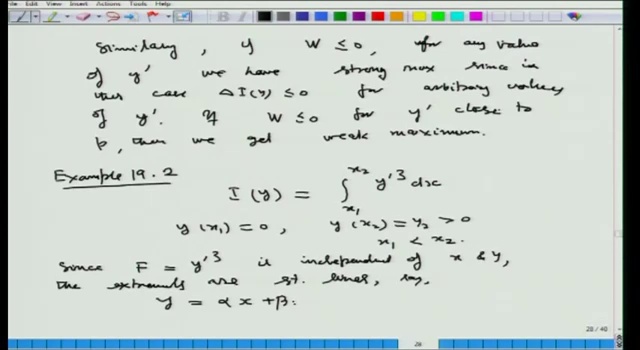 File Edit View Insert Actions Tools Help
Similarly, if W ≤ 0, for any value
of y' we have strong max since in
this case ΔI(y) ≤ 0 for arbitrary values
of y'. If W ≤ 0 for y' close to
p, then we get weak maximum.
Example 19.2
I(y) = ∫_{x₁}^{x₂} y'³ dx
y(x₁) = 0, y(x₂) = y₂ > 0
x₁ < x₂.
Since F = y'³ is independent of x & y,
the extremals are st. lines, say,
y = αx + β.
28 / 40
28